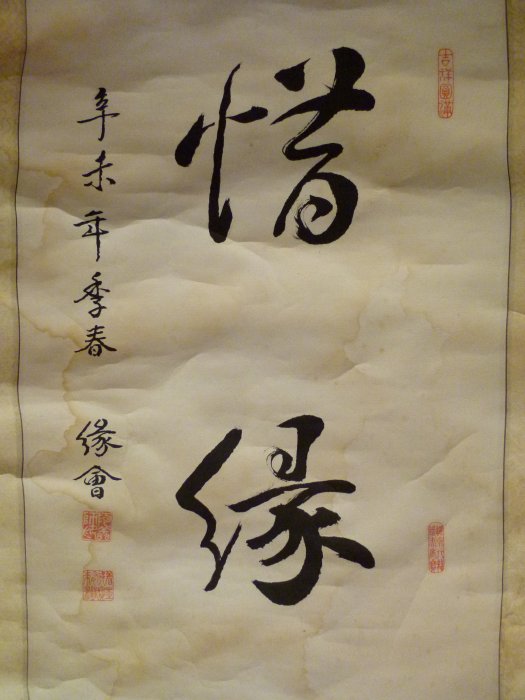 惜緣
辛未年季春 緣會
吉祥圓滿